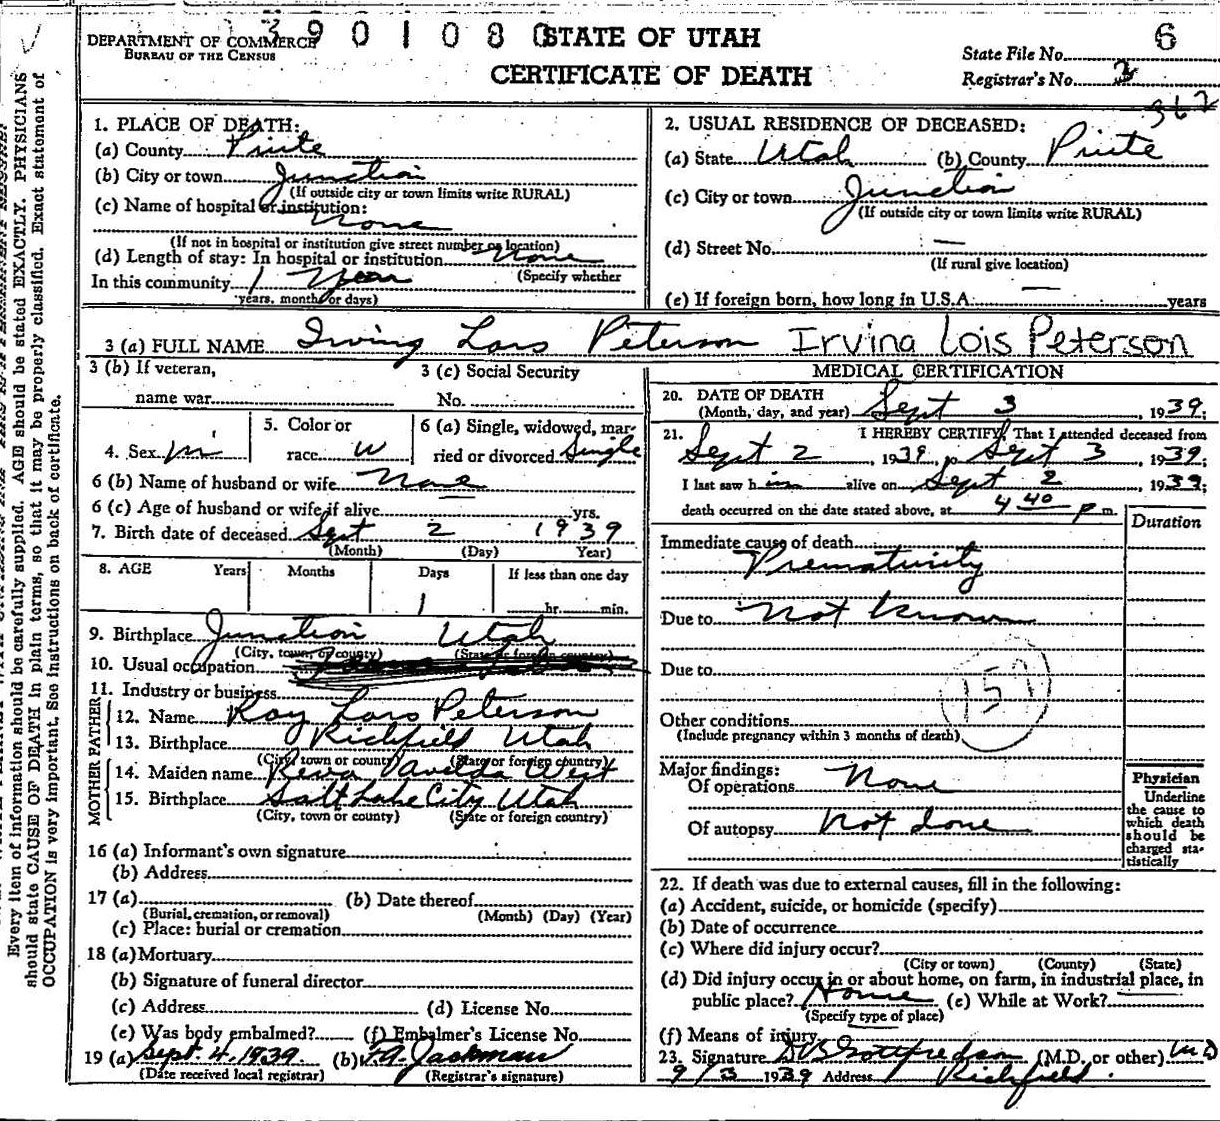 3901080
STATE OF UTAH
CERTIFICATE OF DEATH
DEPARTMENT OF COMMERCE
BUREAU OF THE CENSUS
State File No. 6
Registrar's No. 3
362
Every item of information should be carefully supplied. AGE should be stated EXACTLY. PHYSICIANS
should state CAUSE OF DEATH in plain terms, so that it may be properly classified. Exact statement of
OCCUPATION is very important. See instructions on back of certificate.
1. PLACE OF DEATH:
(a) County Piute
(b) City or town Junction
(If outside city or town limits write RURAL)
(c) Name of hospital or institution:
None
(If not in hospital or institution give street number or location)
(d) Length of stay: In hospital or institution None
(Specify whether
In this community 1 Year
years, months or days)
2. USUAL RESIDENCE OF DECEASED:
(a) State Utah (b) County Piute
(c) City or town Junction
(If outside city or town limits write RURAL)
(d) Street No. —
(If rural give location)
(e) If foreign born, how long in U.S.A. — years
3 (a) FULL NAME Irving Lars Peterson Irvina Lois Peterson
3 (b) If veteran,
name war
3 (c) Social Security
No.
4. Sex m
5. Color or
race W
6 (a) Single, widowed, mar-
ried or divorced Single
6 (b) Name of husband or wife None
6 (c) Age of husband or wife if alive yrs.
7. Birth date of deceased Sept 2 1939
(Month) (Day) Year)
8. AGE Years Months Days If less than one day
1 hr. min.
9. Birthplace Junction Utah
(City, town, or county) (State or foreign country)
10. Usual occupation
11. Industry or business
FATHER
12. Name Roy Lars Peterson
13. Birthplace Richfield Utah
(City, town or county) (State or foreign country)
MOTHER
14. Maiden name Reva West
15. Birthplace Salt Lake City Utah
(City, town or county) (State or foreign country)
16 (a) Informant's own signature
(b) Address
17 (a) (b) Date thereof
(Burial, cremation, or removal) (Month) (Day) (Year)
(c) Place: burial or cremation
18 (a) Mortuary
(b) Signature of funeral director
(c) Address (d) License No.
(e) Was body embalmed? (f) Embalmer's License No.
19 (a) Sept. 4, 1939 (b) Jackman
(Date received local registrar) (Registrar's signature)
MEDICAL CERTIFICATION
20. DATE OF DEATH
(Month, day, and year) Sept 3, 1939;
21. I HEREBY CERTIFY, That I attended deceased from
Sept 2, 1939, to Sept 3, 1939;
I last saw him alive on Sept 2 1939;
death occurred on the date stated above, at 4 40 p m.
Duration
Immediate cause of death
Prematurity
Due to Not Known
Due to
159
Other conditions
(Include pregnancy within 3 months of death)
Major findings:
Of operations None
Of autopsy Not done
Physician
Underline
the cause to
which death
should be
charged sta-
tistically
22. If death was due to external causes, fill in the following:
(a) Accident, suicide, or homicide (specify)
(b) Date of occurrence
(c) Where did injury occur?
(City or town) (County) (State)
(d) Did injury occur in or about home, on farm, in industrial place, in
public place? Home (e) While at Work?
(Specify type of place)
(f) Means of injury
23. Signature Gottfredson (M.D. or other) MD
9/3 1939 Address Richfield.